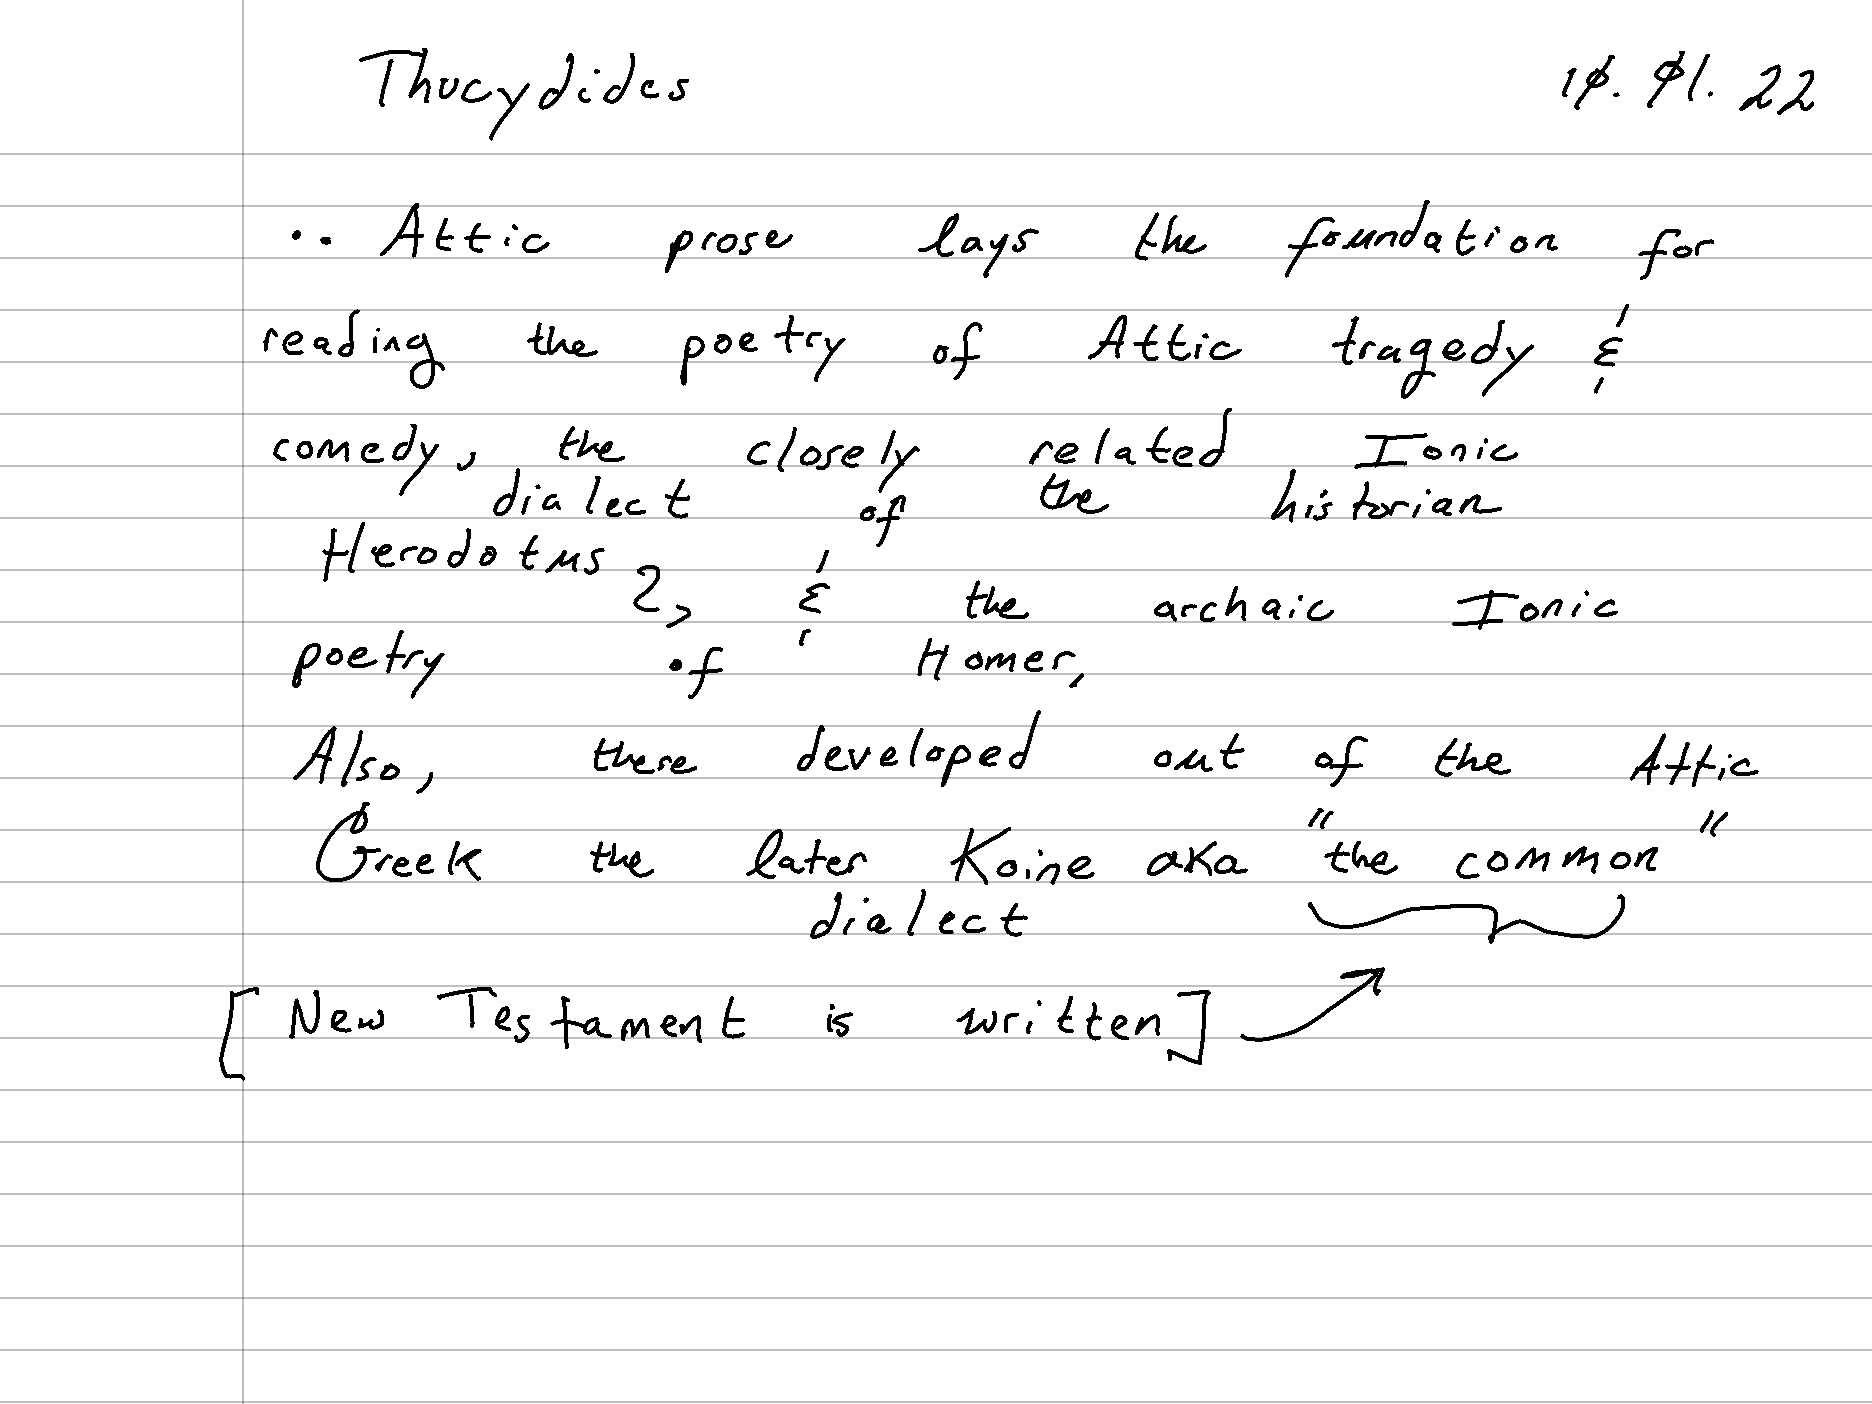 Thucydides 10.01.22
.. Attic prose lays the foundation for
reading the poetry of Attic tragedy &
comedy, the closely related Ionic
dialect of the historian
Herodotus 2, & the archaic Ionic
poetry of Homer,
Also, there developed out of the Attic
Greek the later Koine aka "the common"
dialect
[New Testament is written]